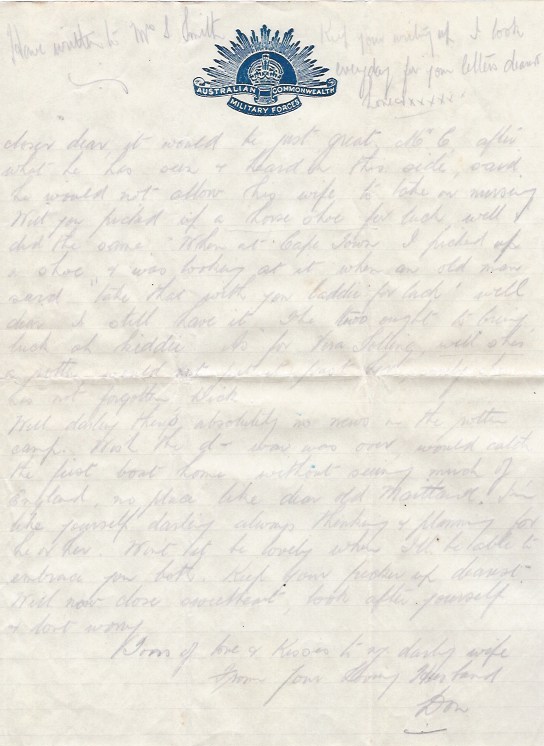 Have written to Mrs S Smith
Keep your writing up I look
everyday for your letters dearest
Love xxxxx
AUSTRALIAN COMMONWEALTH
MILITARY FORCES
closer dear, it would be just great, Mr C. after
what he has seen & heard on this side, said
he would not allow his wife to take on nursing
Well you picked up a horse shoe for luck well I
did the same. When at Cape Town I picked up
a shoe & was looking at it when an old man
said "take that with you laddie for luck" well
dear I still have it. The two ought to bring
luck eh kiddie. As for Mrs well she
is
has not forgotten
Well darling theres absolutely no news in the rotten
camp. Wish the d— war was over, would catch
the first boat home without seeing much of
England, no place like dear old Maitland. I'm
like yourself darling always thinking & planning for
he or her. Wont it be lovely when I'll be able to
embrace you both. Keep your pecker up dearest
Will now close sweetheart, look after yourself
& dont worry
Tons of love & Kisses to my darling wife
From your loving Husband
Don